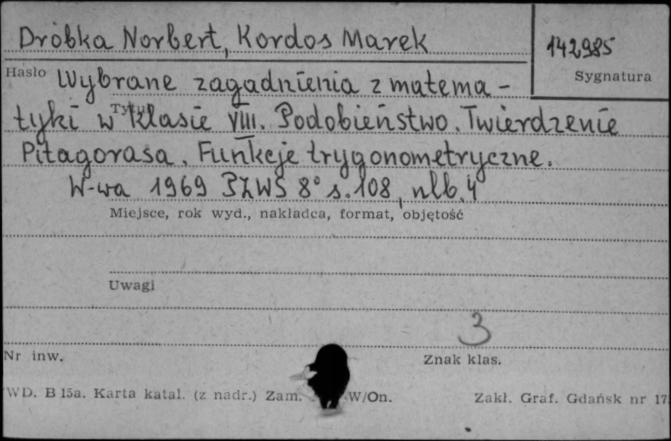 Dróbka Norbert, Kordos Marek
142985
Hasło
Sygnatura
Wybrane zagadnienia z matema-
tyki w klasie VIII. Podobieństwo. Twierdzenie
Pitagorasa. Funkcje trygonometryczne.
W-wa 1969 PZWS 8° s. 108, nlb. 4
Miejsce, rok wyd., nakładca, format, objętość
Uwagi
3
Nr inw.
Znak klas.
WD. B 15a. Karta katal. (z nadr.) Zam. W/On.
Zakł. Graf. Gdańsk nr 17